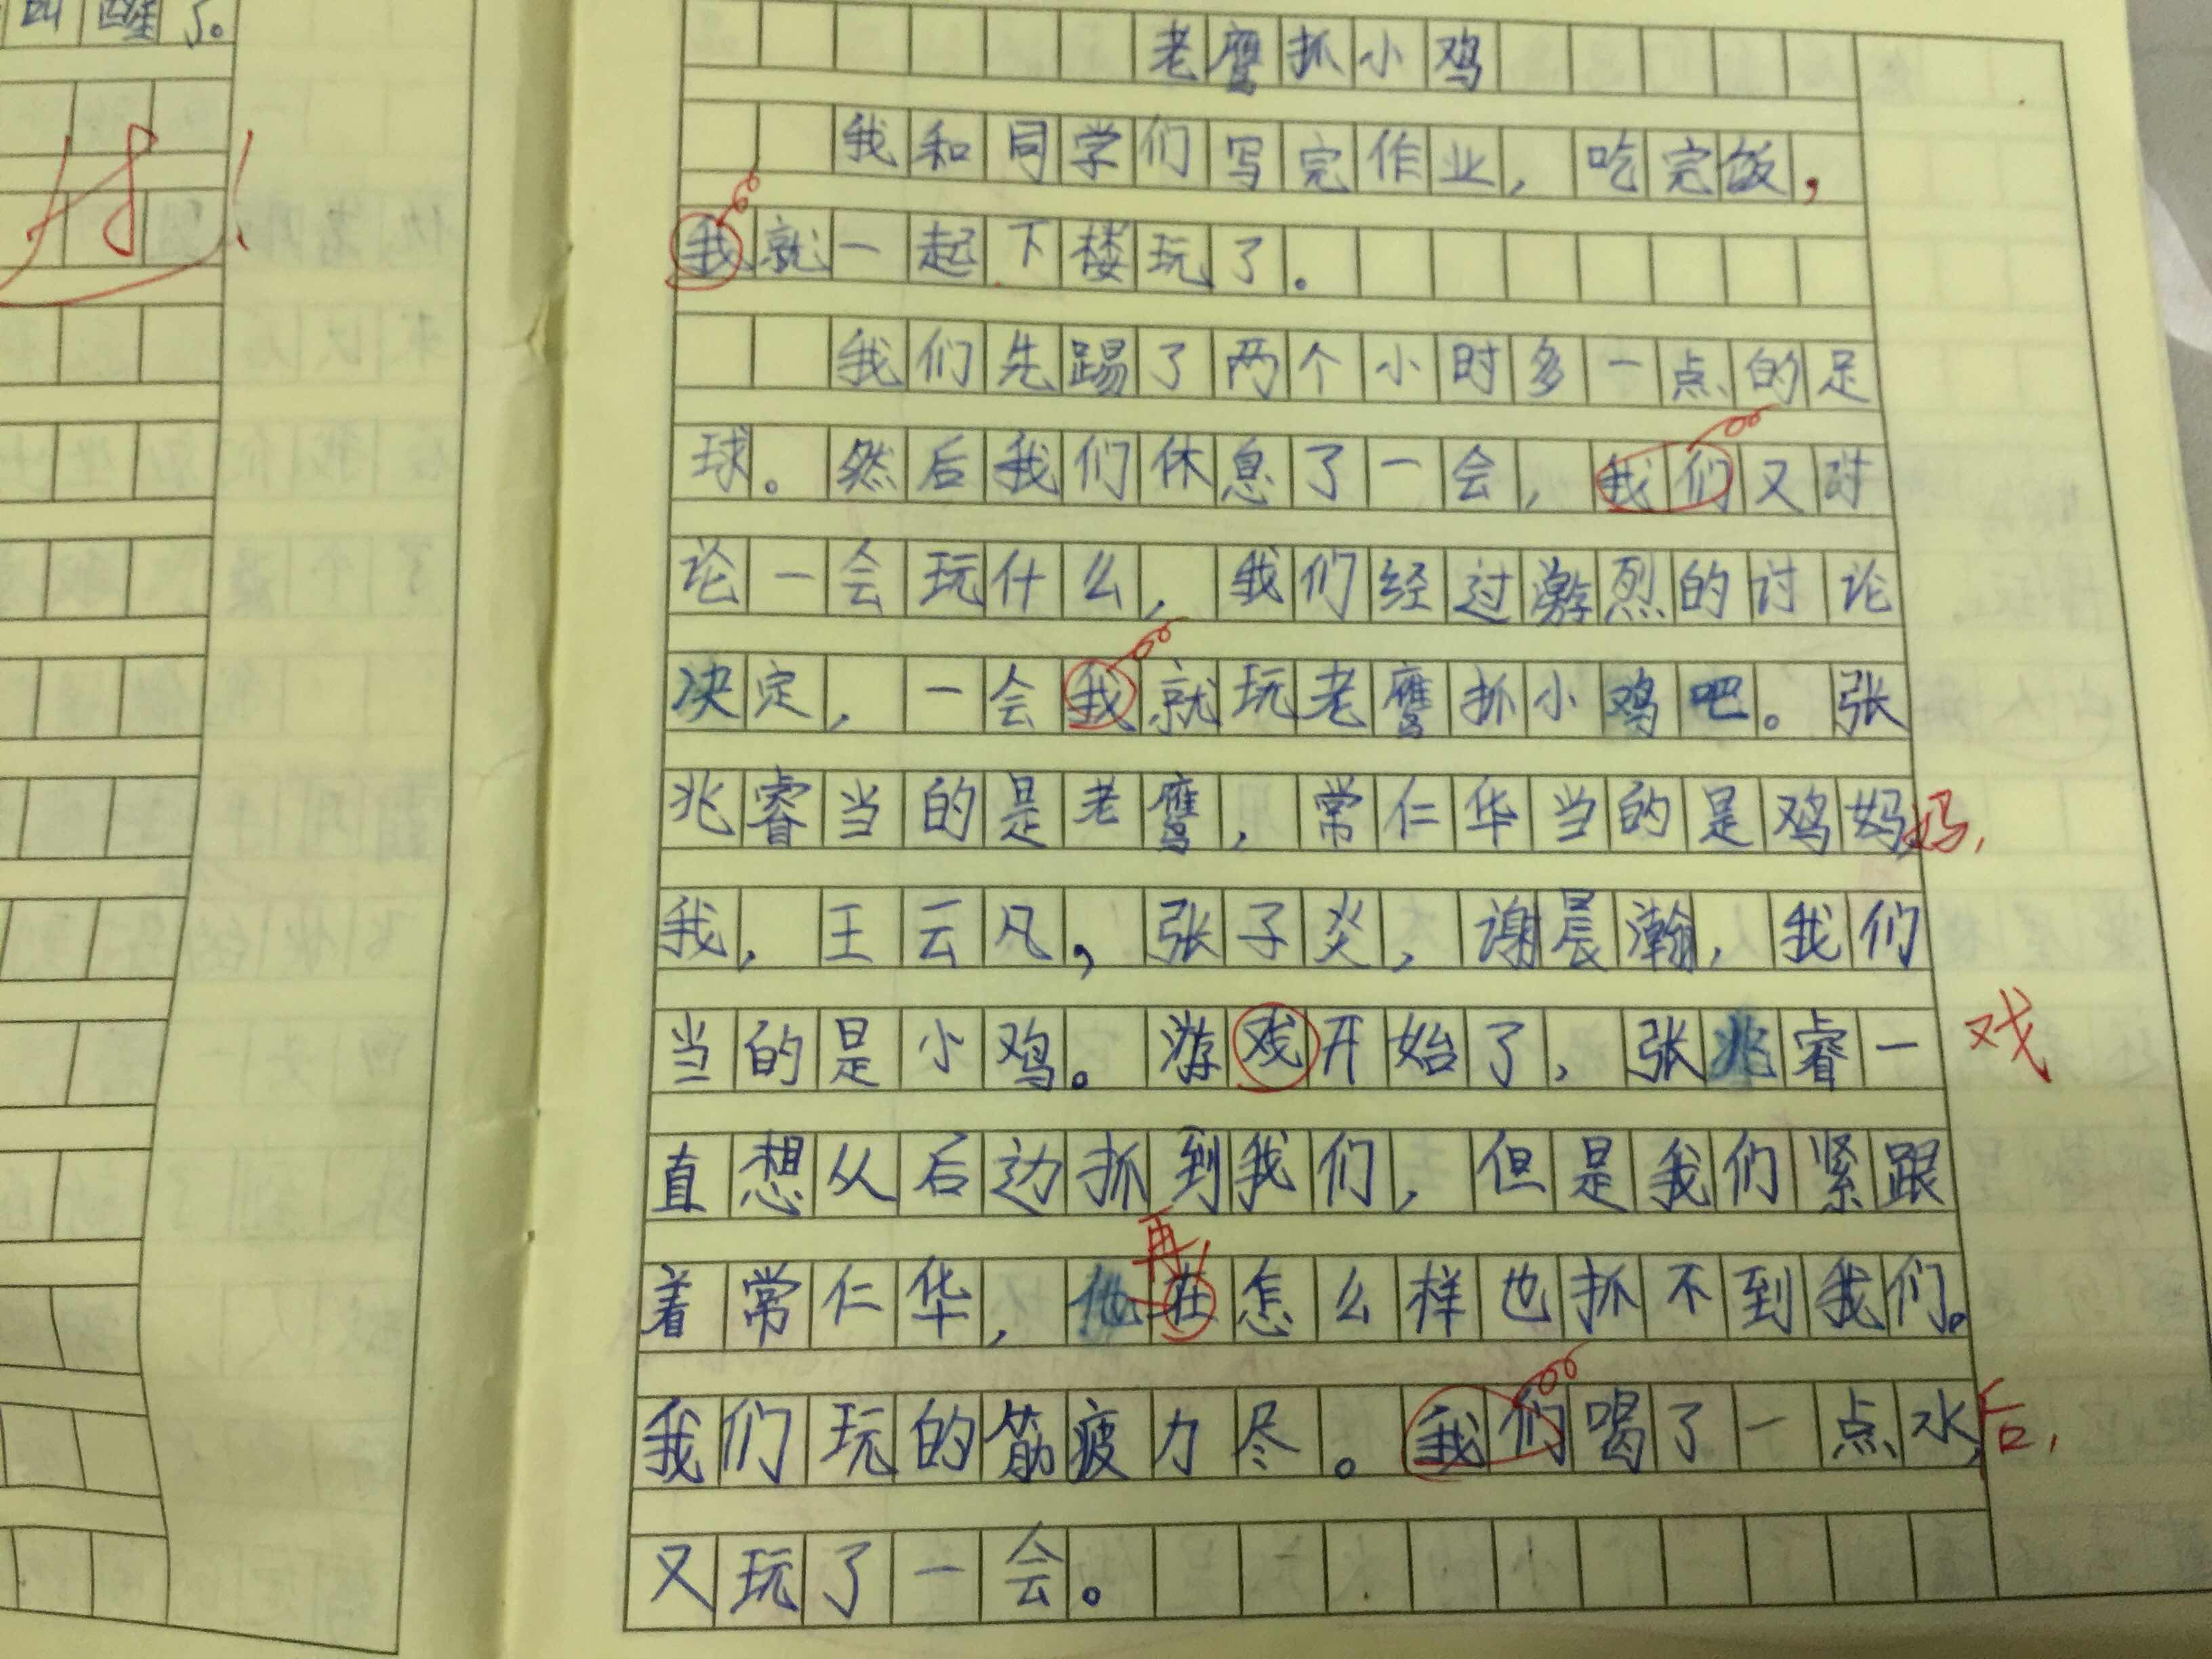 叫醒了。
老鹰抓小鸡
我和同学们写完作业，吃完饭，
我就一起下楼玩了。
我们先踢了两个小时多一点的足
球。然后我们休息了一会，我们又讨
论一会玩什么，我们经过激烈的讨论
决定，一会我就玩老鹰抓小鸡吧。张
兆睿当的是老鹰，常仁华当的是鸡妈妈，
我，王云凡，张子炎，谢晨瀚，我们
当的是小鸡。游戏开始了，张兆睿一
戏
直想从后边抓到我们，但是我们紧跟
再
着常仁华，他在怎么样也抓不到我们。
我们玩的筋疲力尽。我们喝了一点水后，
又玩了一会。